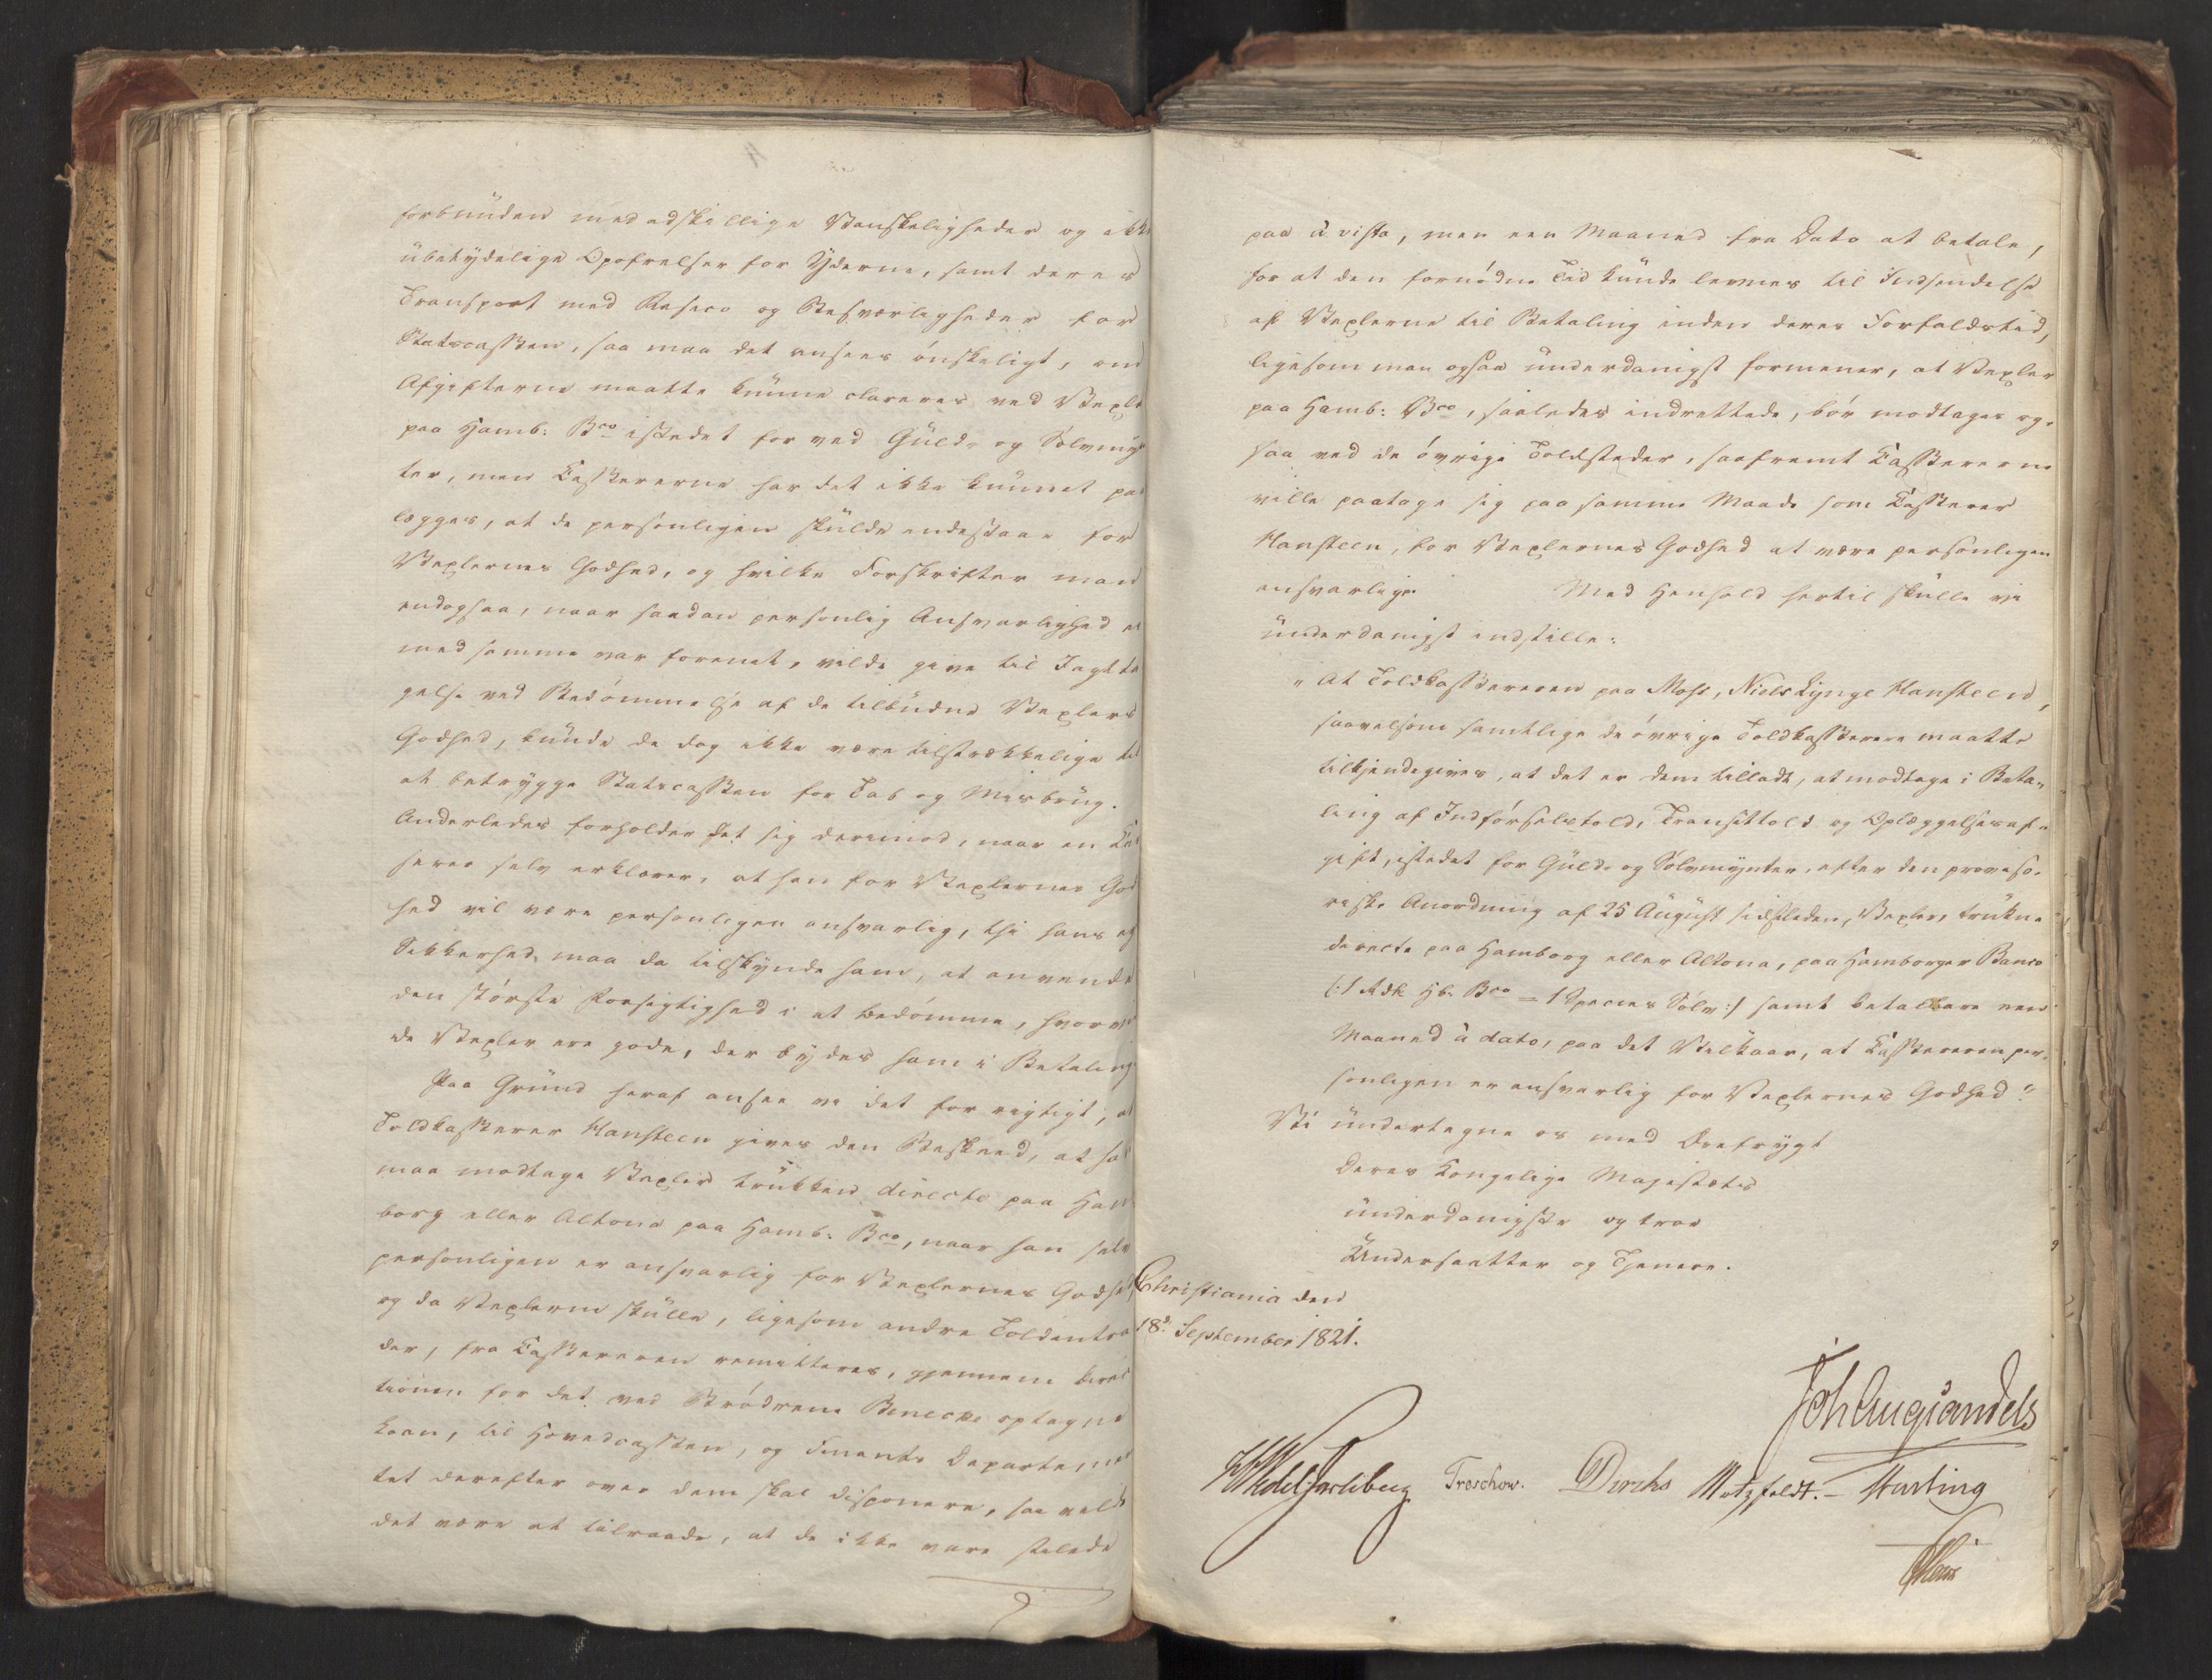 forbunden med adskillige Vanskeligheder og ikke
ubetydelige Opofrelser for Yderne, samt deres
Transport med Resico og Besværligheder for
Statscassen, saa maa det ansees ønskeligt, om
Afgifterne maatte kunne clareres ved Vexle
paa Hamb: Bco istedet for ved Guld- og Sølvmyn
ter, men Casserererne har det ikke kunnet paa
lægges, at de personligen skulde indestaae for
Vexlernes Godhed, og hvilke Forskrifter man
endogsaa, naar saadan personlig Ansvarlighed ei
med samme var forenet, vilde give til Iagtta
gelse ved Bedømmelse af de tilbudne Vexlers
Godhed, kunde de dog ikke være tilstrækkelige til
at betrygge Statscassen for Tab og Misbrug.
Anderledes forholder det sig derimod, naar en Cas
serer selv erklærer, at han for Vexlernes God
hed vil være personligen ansvarlig, thi hans eg
Sikkerhed maa da tilskynde ham, at anvende
den største Forsigtighed i at bedømme, hvorvi
de Vexler ere gode, der bydes ham i Betaling
Paa Grund heraf ansee vi det for rigtigt, at
Toldkasserer Hansteen gives den Beskeed, at ha
maa modtage Vexler trukken directe paa Ham
borg eller Altona paa Hamb: Bco, naar han selv
personligen er ansvarlig for Vexlernes Godhed,
og da Vexlerne skulle, ligesom andre Toldintra
der, fra Cassereren remitteres, gjennem Direc
tionen for det ved Brødrene Benecke optagne
Laan, til Hovedcassen, og Finants Departemen
tet derefter over dem skal disponere, saa vilde
det være at tilraade, at de ikke vare stilede
paa à vista, men een Maaned fra Dato at betale,
for at den fornødne Tid kunde levnes til Indsendelse
af Vexlerne til Betaling inden deres Forfaldstid,
ligesom man ogsaa underdanigst formener, at Vexler
paa Hamb: Bco, saaledes indrettede, bør modtages og-
saa ved de øvrige Toldsteder, saafremt Casserererne
ville paatage sig paa samme Maade som Casserer
Hansteen, for Vexlernes Godhed at være personligen
ansvarlige. Med Henhold hertil skulle vi
underdanigst indstille:
"At Toldkassereren paa Moss, Niels Lynge Hansteen,
saavelsom samtlige de øvrige Toldkasserere maatte
tilkjendegives, at det er dem tilladt, at modtage i Beta-
ling af Indførselstold, Transittold og Oplæggelsesaf-
gift, istedet for Guld- og Sølvmynter, efter den proviso-
riske Anordning af 25 August sidstleden, Vexler, trukne
directe paa Hamborg eller Altona, paa Hamborger Banco
(:1 Rdlr Hb: Bco = 1 Species Sølv:) samt betalbare een
Maaned à dato, paa det Vilkaar, at Cassereren per-
sonligen er ansvarlig for Vexlernes Godhed."
Vi undertegne os med Ærefrygt
Deres Kongelige Majestæts
underdanigste og troe
Undersaatter og Tjenere.
Christiania den
18de September 1821.
Joh Aug Sandels
HWedel Jarlsberg Treschow. Diriks Motzfeldt. Harting